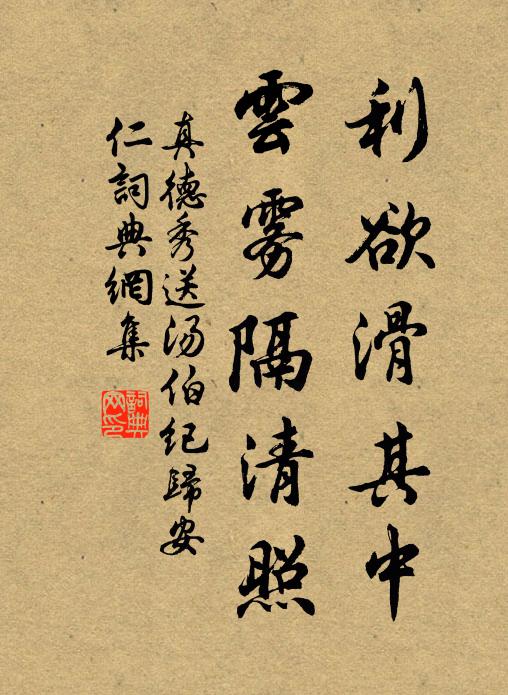 利欲滑其中
雲雾隔清照
真德秀送汤伯纪歸安
仁詞典網集
詞典
网印